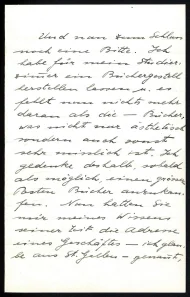 Und nun zum Schluss
noch eine Bitte. Ich
habe für mein Studier-
zimmer ein Büchergestell
erstellen lassen u. es
fehlt nun nichts mehr
daran als die – Bücher,
was nicht nur ästhetisch
sondern auch sonst
sehr misslich ist. Ich
gedenke deshalb, sobald
als möglich, einen grössern
Posten Bücher anzukau-
fen. Nun hatten Sie
mir meines Wissens
seiner Zeit die Adresse
eines Geschäftes – ich glau-
be aus St. Gallen – genannt,